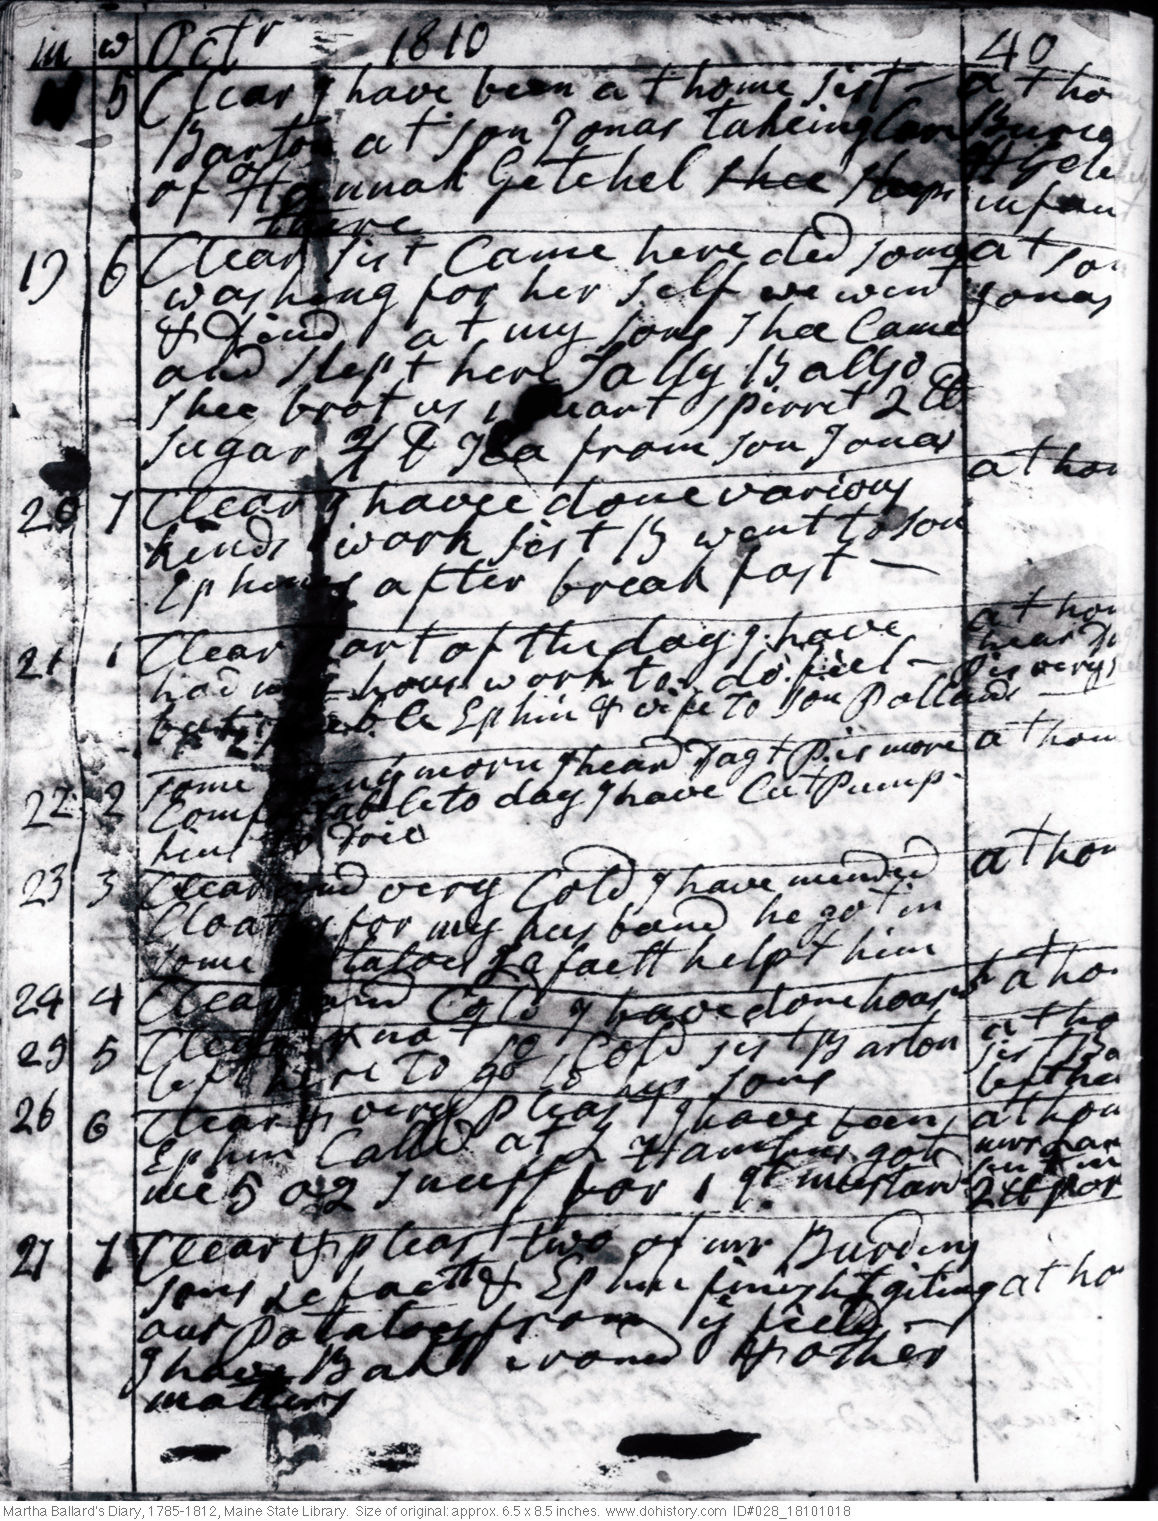 m w Octr 1810 40
5 Clear I have been at home sist - at ho
Barton at son Jonas takeing Care Buried
of Hannah Getchel shee sleeps H Getc
there infan
19 6 Clear sist Came here did some at son
washing for her self we went Jonas
& dind at my sons shee Came
and slept here Sally B allso
shee brot us 1 quart spirret 2 lb
sugar & Tea from son Jonas
20 7 Clear I havee done various at hom
kinds work sist B went to son
Ephms after breakfast -
21 1 Clear part of the day I have at hom
had hous work to do. feel - hear Dag
Ephm & wife to son Pollards P is very
some morn I heard Dagt P is more at hom
22 2 Comfortable to day I have Cut Pump-
kins to Drie
23 3 Clear and very Cold I have mended at hom
Cloaths for my husband he got in
some Potatoes Lafaett helpt him
24 4 Clear and Cold I have done hous at ho
25 5 Clear & not so Cold sist Barton at ho
left here to go to her sons sist Ba
left he
26 6 Clear & very pleast I have been at hom
Ephm Calld at Hamlins got mrs
me 5 oz snuff for 1 qt mustard 2 lb
27 7 Clear & pleast two of mr Burdens
sons Lafaett & Ephm finisht giting at ho
our Potatoes from ye field -
I have Bakt ironed & other
matters
Martha Ballard's Diary, 1785-1812, Maine State Library. Size of original: approx. 6.5 x 8.5 inches. www.dohistory.com ID#028_18101018